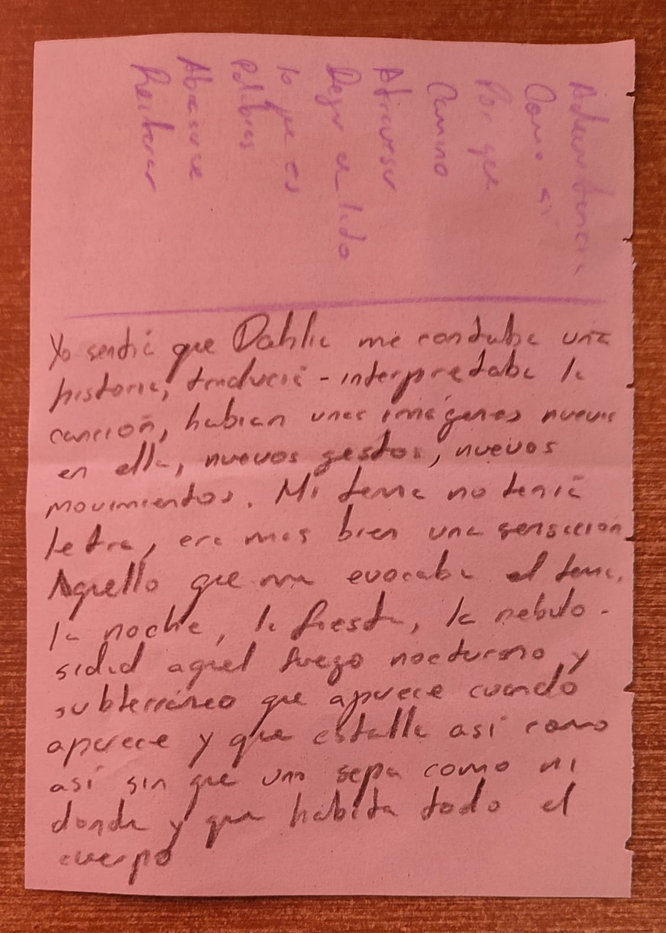 Advertencia
Como si
Por que
Camino
Dejar de lado
lo que es
Reiterar
Yo sentía que Dahlia me contaba una
historia, traducía - interpretaba la
canción, habían unas imágenes nuevas
en ella, nuevos gestos, nuevos
movimientos. Mi tema no tenía
letra, era mas bien una sensación
Aquello que me evocaba el tema,
la noche, la fiesta, la nebulo-
sidad aquel fuego nocturno y
subterráneo que aparece cuando
aparece y que estalla así como
así sin que uno sepa como ni
donde y que habita todo el
cuerpo